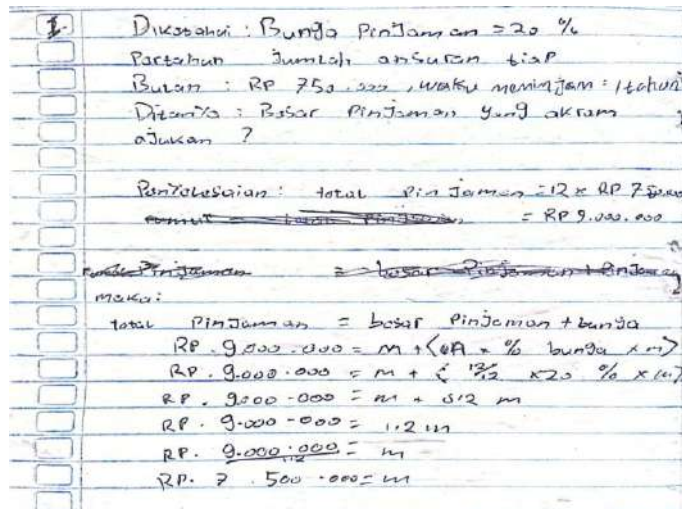 1. Dikatahui : Bunga Pinjaman = 20 %
Partahun Jumlah ansuran tiap
Bulan : RP 750.000 , waktu meminjam : 1 tahun
Ditanya : Basar Pinjaman yang akram
ajukan ?
Panyalesaian : total Pinjaman = 12 x RP 750.000
= RP 9.000.000
maka :
total Pinjaman = besar Pinjaman + bunga
RP. 9.000.000 = m + ( x % bunga x m)
RP. 9.000.000 = m + ( 12/12 x 20 % x m)
RP. 9.000.000 = m + 0,2 m
RP. 9.000.000 = 1.2 m
RP. 9.000.000/1.2 = m
RP. 7.500.000 = m